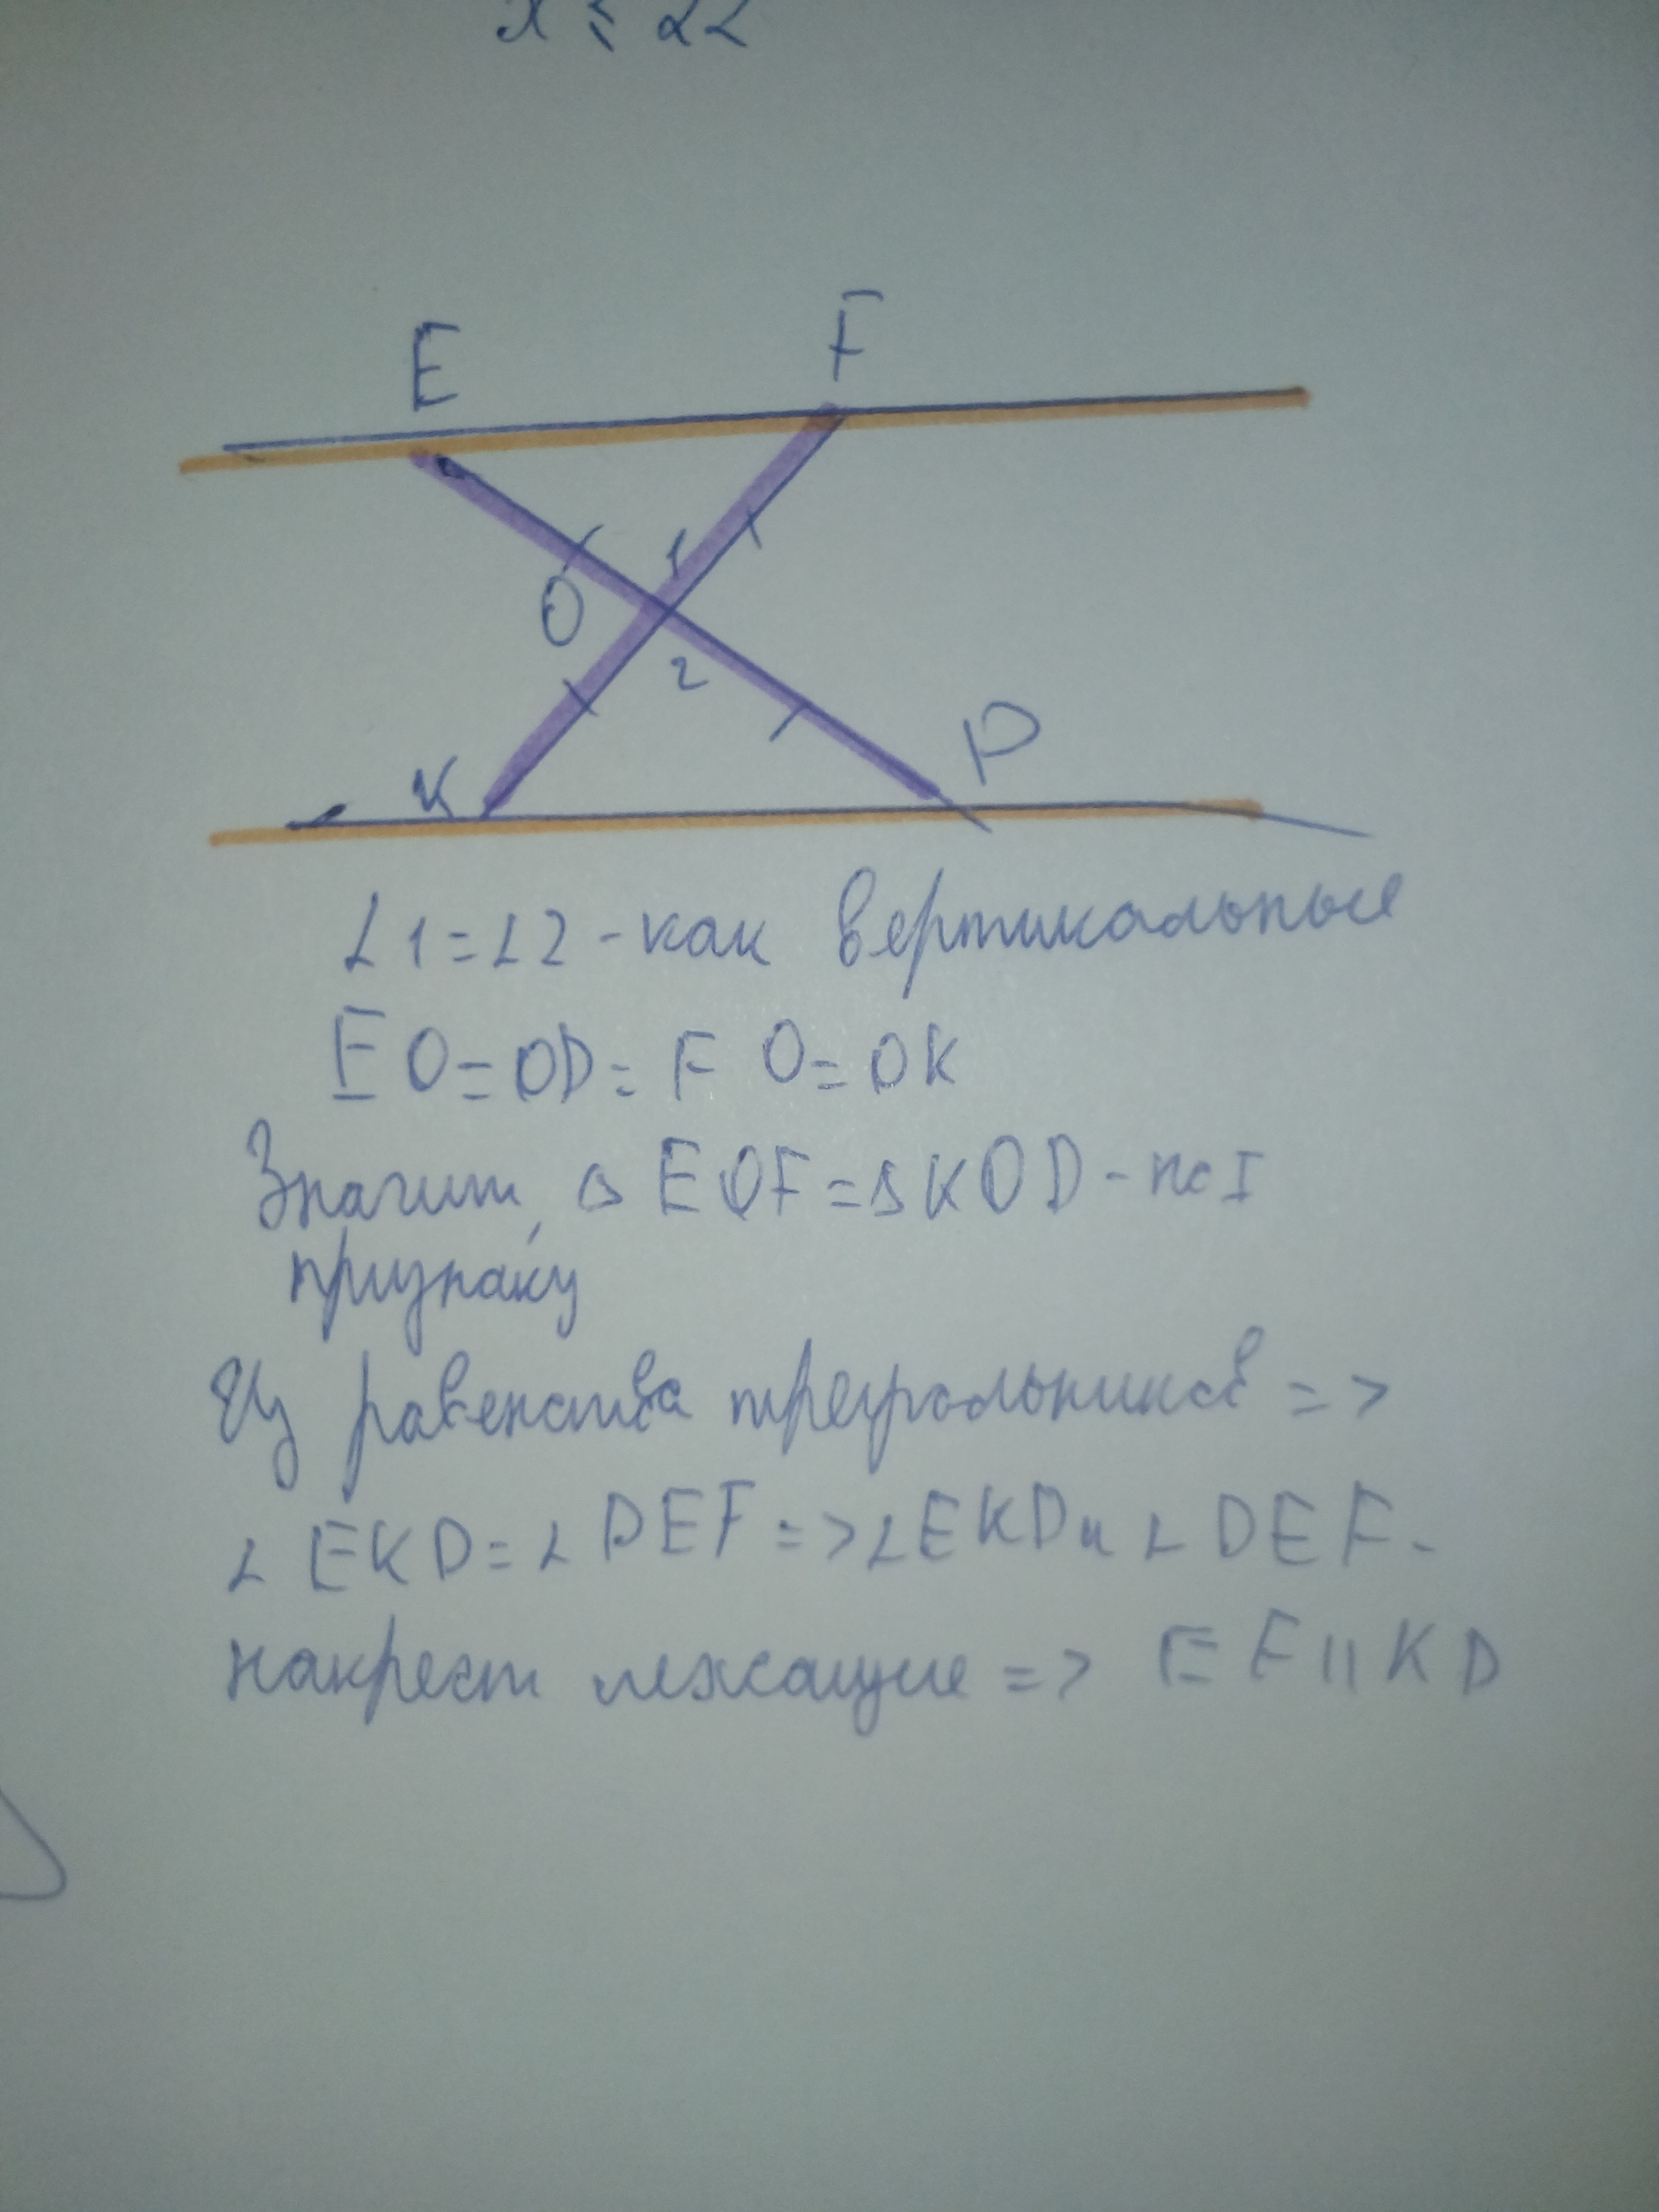 x ≤ 22
E F
1
O
2
K D
∠1=∠2 - как вертикальные
EO=OD=FO=OK
Значит, ΔEOF=ΔKOD - по I
признаку
Из равенства треугольников =>
∠EKD=∠DEF=>∠EKD и ∠DEF -
накрест лежащие => EF||KD